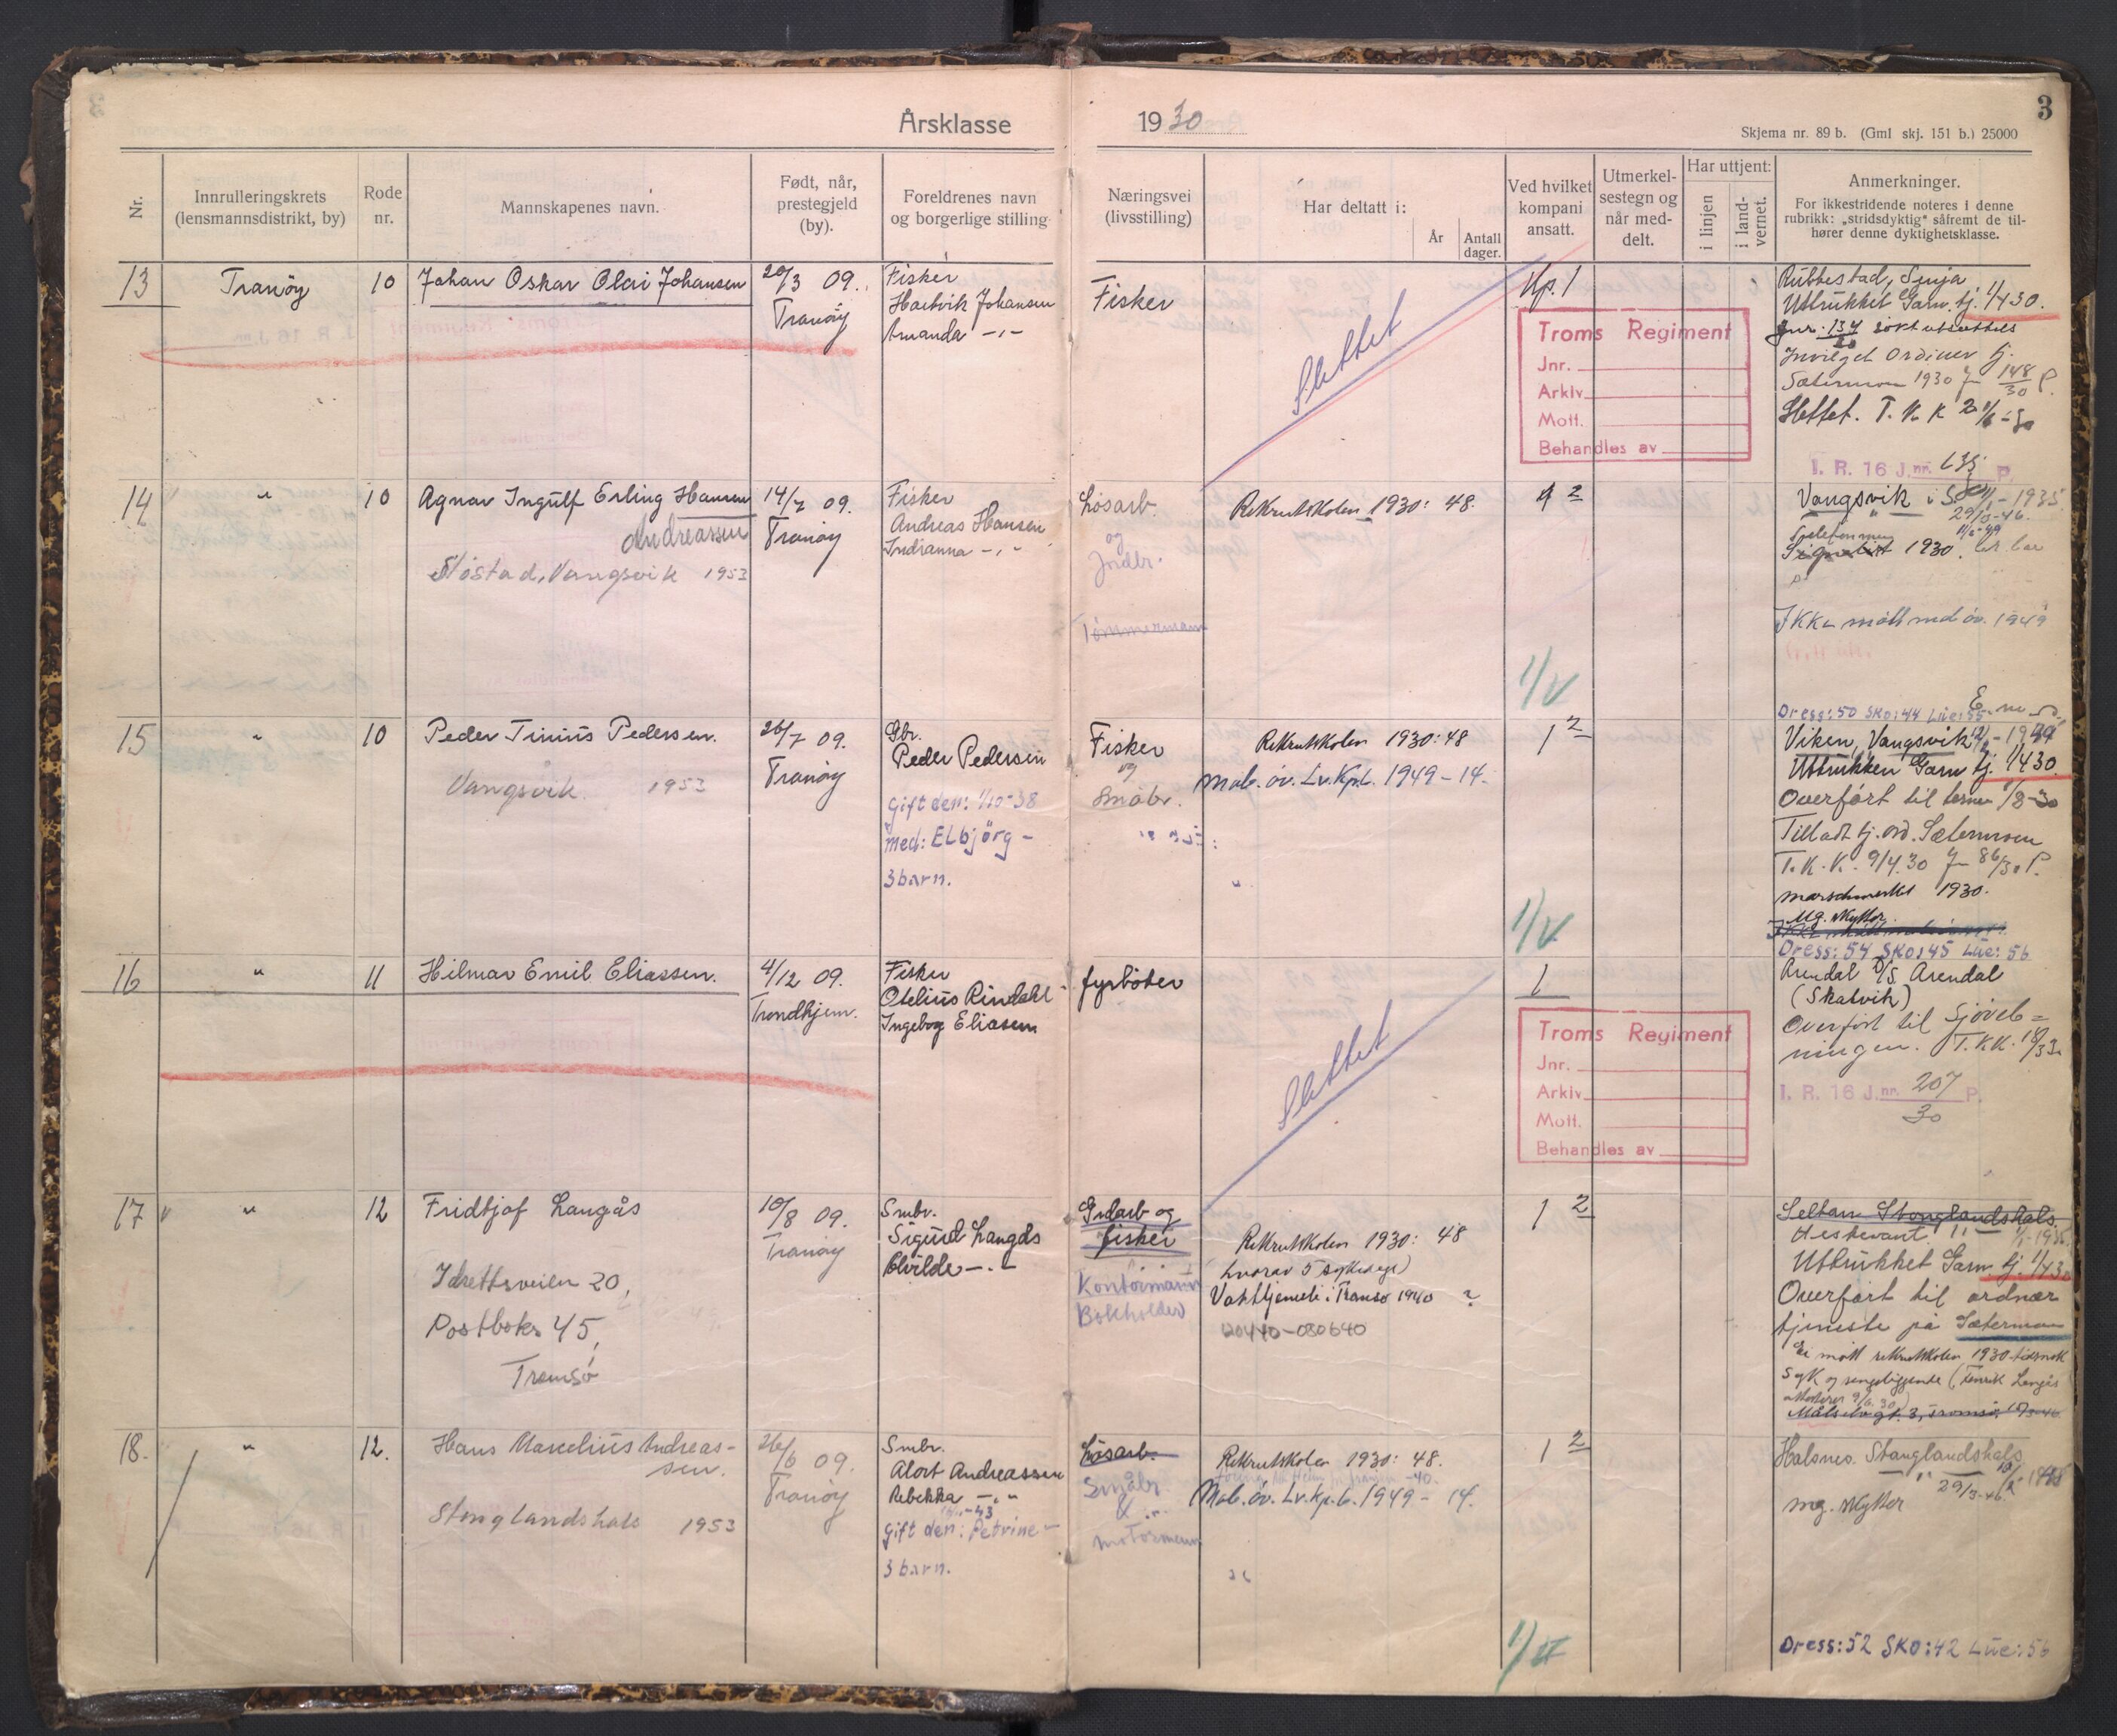 Årsklasse 1930
3
Skjema nr. 89 b. (Gml skj. 151 b.) 25000
Nr.
Innrulleringskrets
(lensmannsdistrikt, by)
Rode
nr.
Mannskapenes navn.
Født, når,
prestegjeld
(by).
Foreldrenes navn
og borgerlige stilling
Næringsvei
(livsstilling)
Har deltatt i:
År
Antall
dager.
Ved hvilket
kompani
ansatt.
Utmerkel-
sestegn og
når med-
delt.
Har uttjent:
i linjen
i land-
vernet.
Anmerkninger.
For ikkestridende noteres i denne
rubrikk: „stridsdyktig“ såfremt de til-
hører denne dyktighetsklasse.
13
Tranöy
10
Johan Oskar Olai Johansen
20/3 09.
Tranöy
Fisker
Hartvik Johansen
Amanda -„-
Fisker
Slettet
Kp. 1
Troms Regiment
Jnr.
Arkiv
Mott.
Behandles av
Rubbestad, Senja
Uttrukket Garn. tj. 1/4 30.
Jnr. 134/30 søkt utsettels
Innvilget ordinær tj.
Sætermoen 1930 Jn 148/30 P.
Slettet. T. K. K
I. R. 16 J.nr. 635 P.
14
"
10
Agnar Ingulf Erling Hansen
Andreassen
Stostad, Vangsvik 1953
14/7 09.
Tranöy
Fisker
Andreas Hansen
Indianna -„-
Løsarb.
og
Jordbr.
Tömmermann
Rekrutskolen 1930: 48.
2
1/V
Vangsvik i S. - 1935
29/10-46.
1930.
Ikke møtt med øv. 1949
Dress: 50 Sko: 44 Lue: 55
15
"
10
Peder Tinius Pedersen.
Vangsvik 1953
26/7 09.
Tranöy
Gbr.
Peder Pedersen
Gift den: 1/10-38
med: Elbjörg -
3 barn.
Fisker
og
Småbr.
Rekrutskolen 1930: 48
Mob. öv. Lv. Kp.L. 1949 - 14.
1 2
1/V
Viken, Vangsvik
Uttrukken Garn tj. 1/4 30.
Overført til
Tilladt tj. ord. Sætermoen
T. K. K. 9/4.30 Jn 86/30 P.
marschmerket 1930.
Mg. skytter.
Dress: 54 Sko: 45 Lue: 56
16
"
11
Hilmar Emil Eliassen.
4/12 09.
Trondhjem.
Fisker
Otelius Rindahl
Ingebog Eliasen
fyrböter
Slettet
1
Troms Regiment
Jnr.
Arkiv
Mott.
Behandles av
Arendal D/S Arendal
(Skatvik)
Overført til Sjöveb=
ningen. T.K.K.
I. R. 16 J.nr. 207/30 P.
17
"
12
Fridtjof Langås
Idrettsveien 20,
Postboks 45,
Tromsö
10/8 09.
Tranöy
Smbr.
Sigurd Langås
Alvilde -„-
Grdarb og
fisker
Kontormann
Bokholder
Rekrutskolen 1930: 48
hvorav 5 sykedage)
Vakttjeneste i Tromsø 1940 ?
120440-080640
1 2
Stonglandshals.
Uttrukket Garn. tj. 1/4 30
Overført til ordnær
tjeneste på Sætermoen
Ei møtt rekrutskolen 1930
syk og sengeliggende
Målselvgt. 3, Tromsø.
18.
"
12.
Hans Marcelius Andreas-
sen.
Stonglandshals 1953
26/6 09.
Tranöy
Smbr.
Alort Andreassen
Rebekka -„-
Gift den: Petrine -
3 barn.
Løsarb.
Småbr.
&
motormann
Rekrutskolen 1930: 48.
Mob. öv. Lv. kp. 6. 1949 - 14.
1 2
1/V
Halsnes. Stonglandshals
29/3-46.
mg. skytter
Dress: 52 Sko: 42 Lue: 56